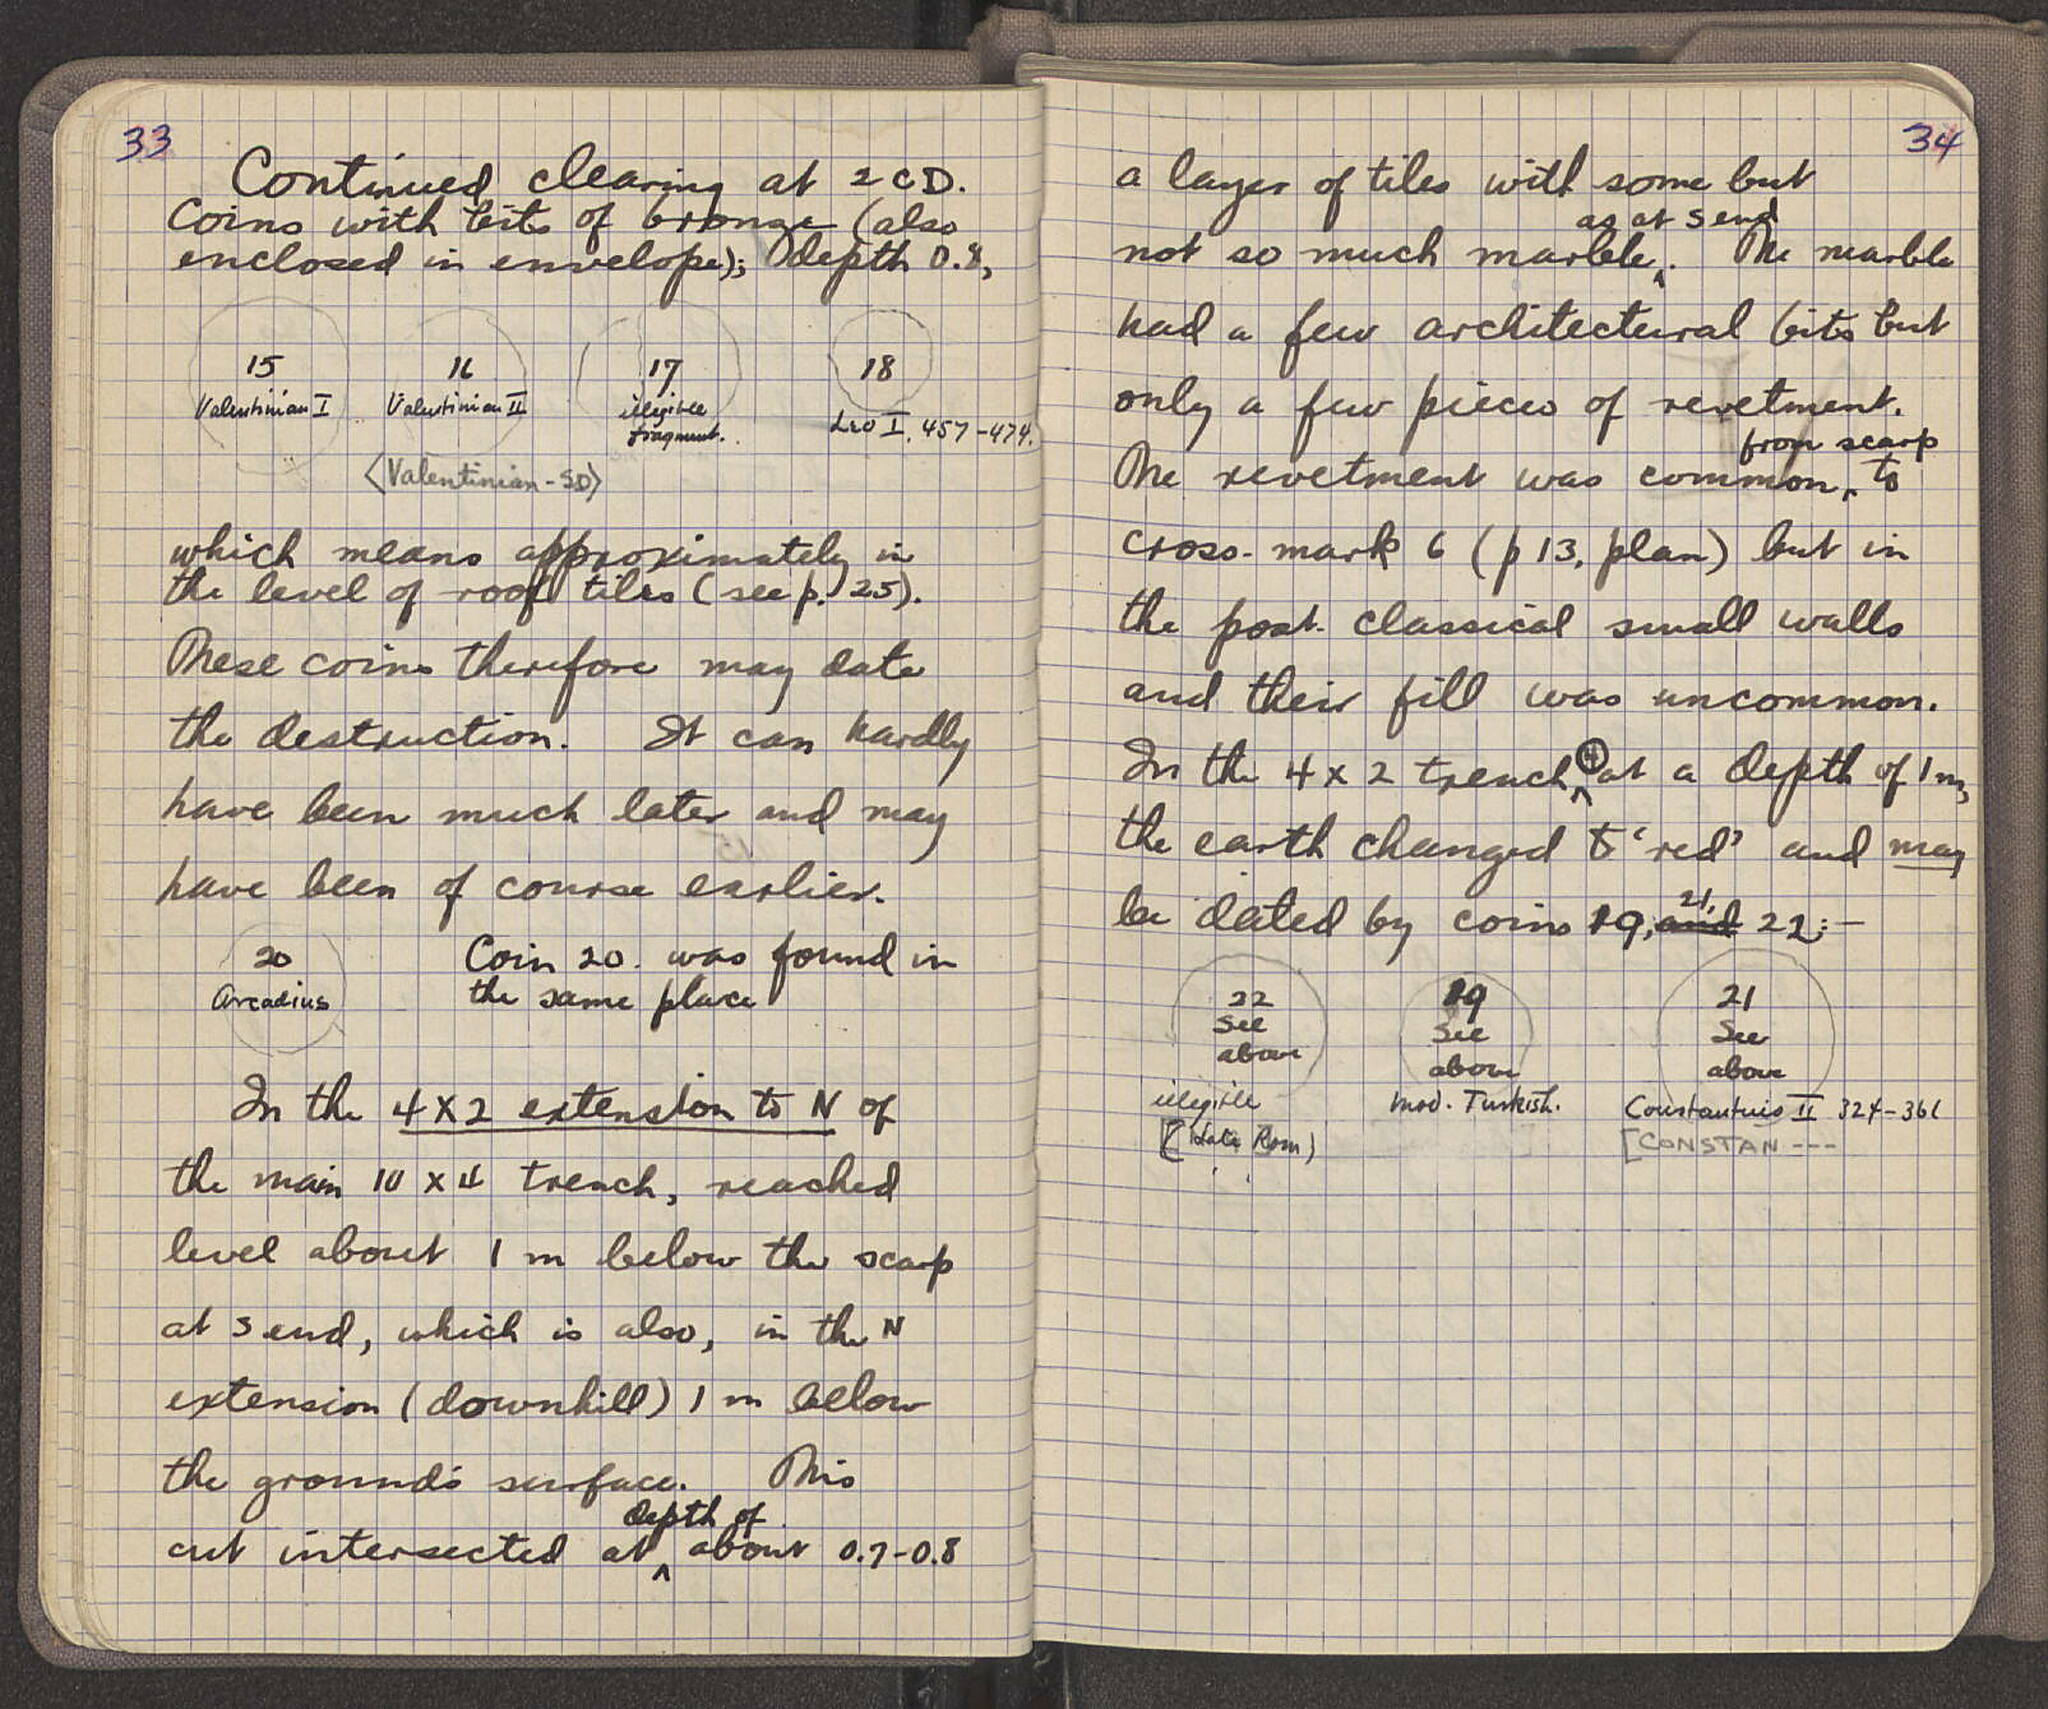 33
Continued clearing at 2CD.
Coins with bits of bronze (also
enclosed in envelope); depth 0.8,
15 16 17 18
Valentinian I Valentinian II illegible Leo I, 457-474.
fragment.
<Valentinian-SD>
which means approximately in
the level of roof tiles (see p. 25).
These coins therefore may date
the destruction. It can hardly
have been much later and may
have been of course earlier.
20 Coin 20. was found in
Arcadius the same place
In the 4x2 extension to N of
the main 10 x 4 trench, reached
level about 1 m below the scarp
at S end, which is also, in the N
extension (downhill) 1 m below
the ground's surface. This
depth of
cut intersected at about 0.7-0.8
34
a layer of tiles with some but
as at S end
not so much marble. The marble
had a few architectural bits but
only a few pieces of revetment.
from scarp
The revetment was common, to
cross-mark 6 (p 13, plan) but in
the post-classical small walls
and their fill was uncommon.
In the 4 x 2 trench, ④ at a depth of 1 m,
the earth changed to 'red' and may
21,
be dated by coins 19, and 22:-
22 19 21
See See See
above above above
illegible mod. Turkish. Constantius II 324-361
[(late Rom) [CONSTAN ---